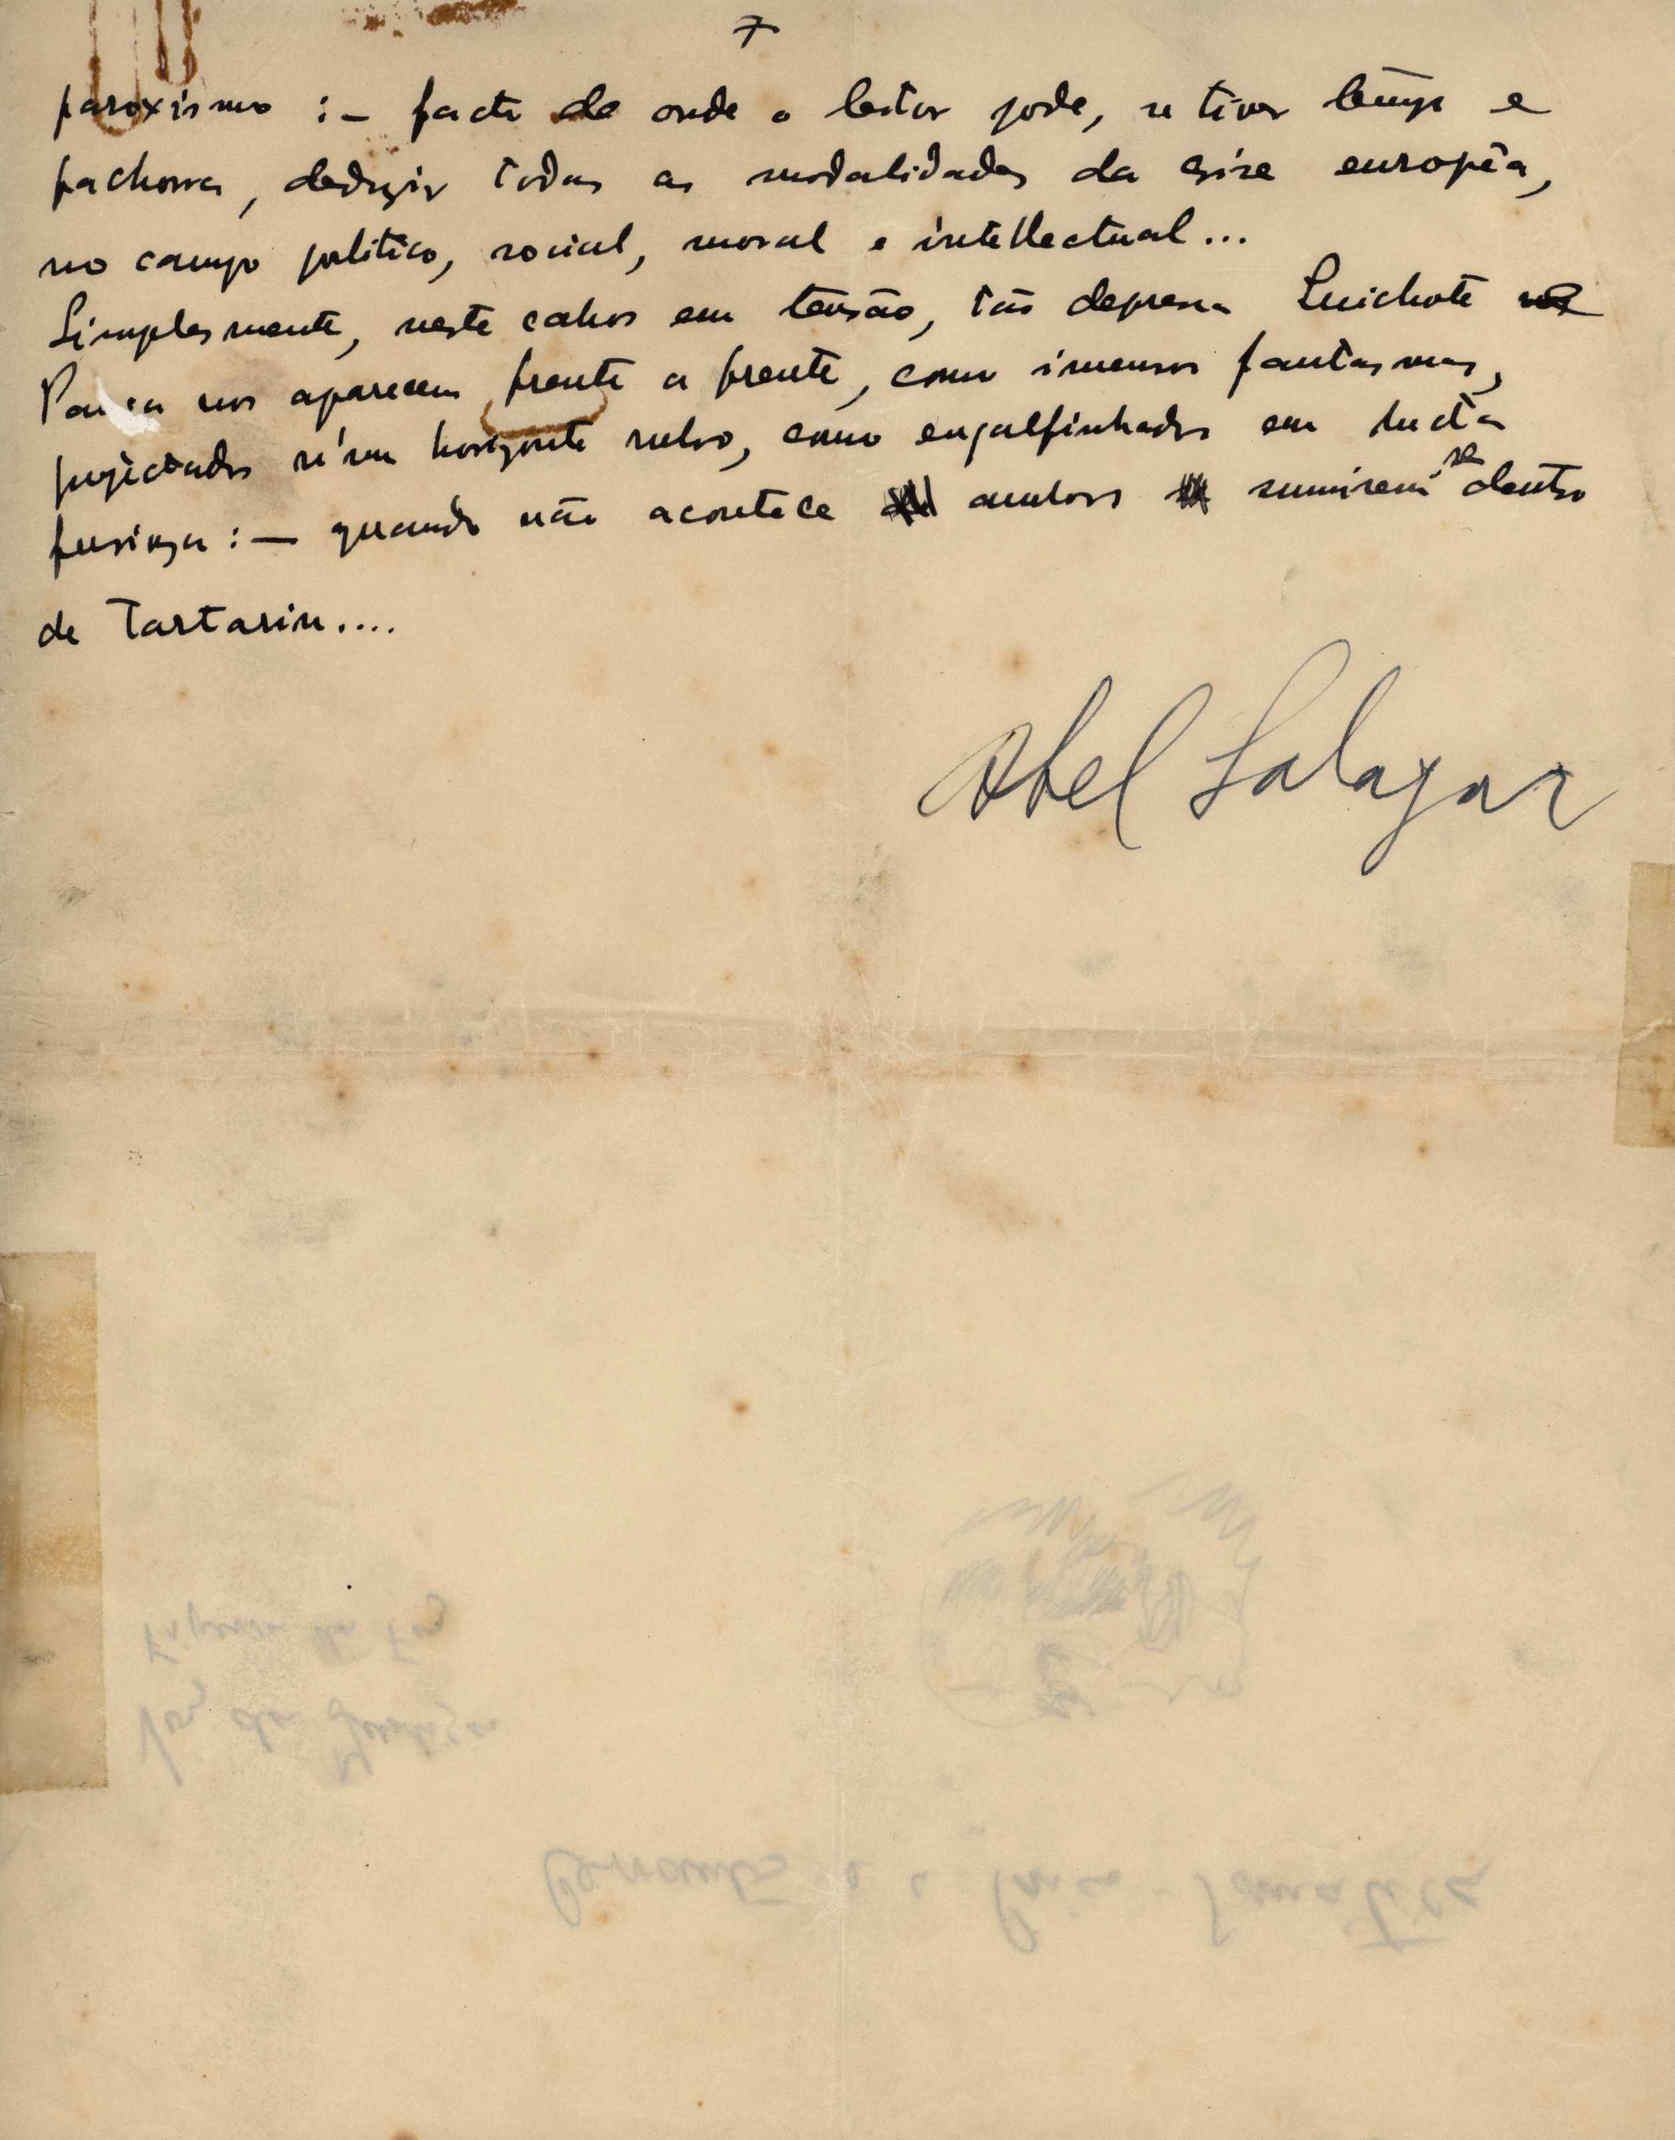 7
paroxismo : – facto de onde o leitor pode, se tiver tempo e
pachorra, deduzir todas as modalidades da crise europêa,
no campo politico, social, moral e intellectual...
Simplesmente, neste cahos em tensão, tão depressa Quichote e
Pança nos aparecem frente a frente, como imensos fantasmas,
projectados n'um horizonte rubro, como engalfinhados em lucta
furiosa : – quando não acontece ambos sumirem-se dentro
de Tartarin....
Abel Salazar
Figueira da Foz
Voz da Justiça